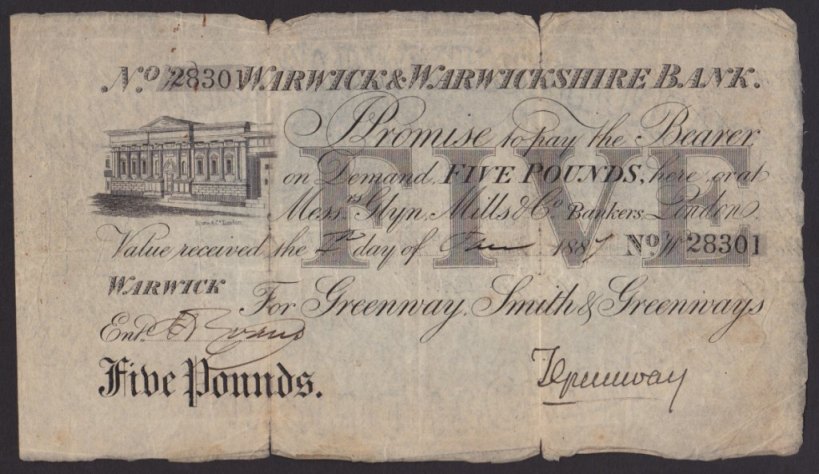 No W28301 WARWICK & WARWICKSHIRE BANK.
I Promise to pay the Bearer
on Demand, FIVE POUNDS, here or at
Messrs Glyn, Mills & Co Bankers London.
FIVE
Value received the day of 1887 No W 28301
WARWICK
For Greenway, Smith & Greenways
Entd E Evans
Five Pounds.
Greenway